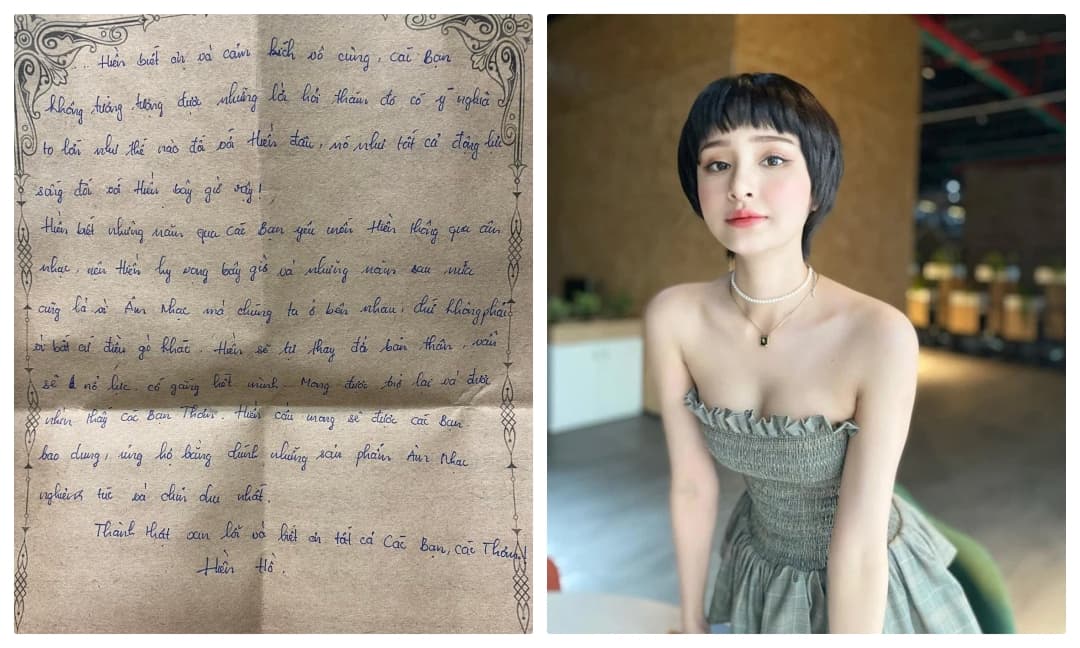 ... Hiền biết ơn và cảm kích vô cùng, các Bạn
không tưởng tượng được những lời hỏi thăm đó có ý nghĩa
to lớn như thế nào đối với Hiền đâu, nó như tất cả động lực
sống đối với Hiền bây giờ vậy!
Hiền biết những năm qua các Bạn yêu mến Hiền thông qua âm
nhạc, nên Hiền hy vọng bây giờ và những năm sau nữa
cũng là vì Âm Nhạc mà chúng ta ở bên nhau, chứ không phải
vì bất cứ điều gì khác. Hiền sẽ tự thay đổi bản thân, vẫn
sẽ nỗ lực, cố gắng hết mình. Mong được trở lại và được
nhìn thấy Các Bạn Thơm. Hiền cầu mong sẽ được các Bạn
bao dung, ủng hộ bằng chính những sản phẩm Âm Nhạc
nghiêm túc và chỉn chu nhất.
Thành thật xin lỗi và biết ơn tất cả Các Bạn, các Thơm!
Hiền Hồ.